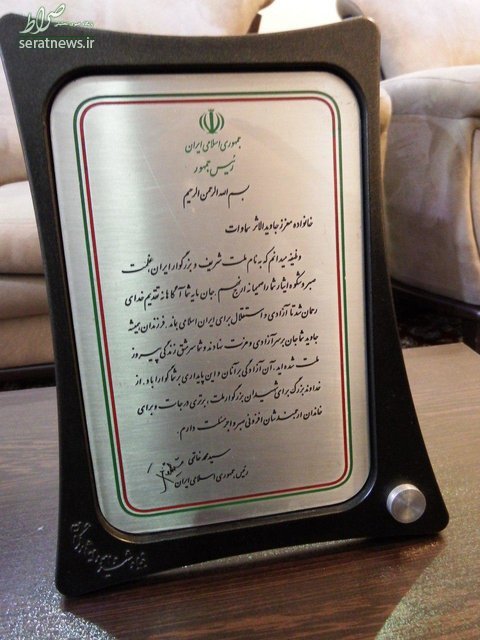 صراط
seratnews.ir
جمهوری اسلامی ایران
رئیس جمهور
بسم الله الرحمن الرحیم
خانواده معزز جاویدالاثر سماوات
وظیفه میدانم که به نام ملت شریف و بزرگوار ایران، عظمت
صبر و شکوه ایثار شما را صمیمانه ارج نهم. جان مایه شما آگاهانه تقدیم خدای
رحمان شد تا آزادی و استقلال برای ایران اسلامی بماند. فرزندان همیشه
جاوید شما جان بر سر آزادی و عزت نهادند و شما سرمشق زندگی پیروز
ملت شده‌اید. آن آزادگی بر آنان و این پایداری بر شما گوارا باد. از
خداوند بزرگ برای شهیدان بزرگوار ملت، برتری درجات و برای
خاندان ارجمندشان افزونی صبر و اجر مسئلت دارم.
سید محمد خاتمی
رئیس جمهوری اسلامی ایران